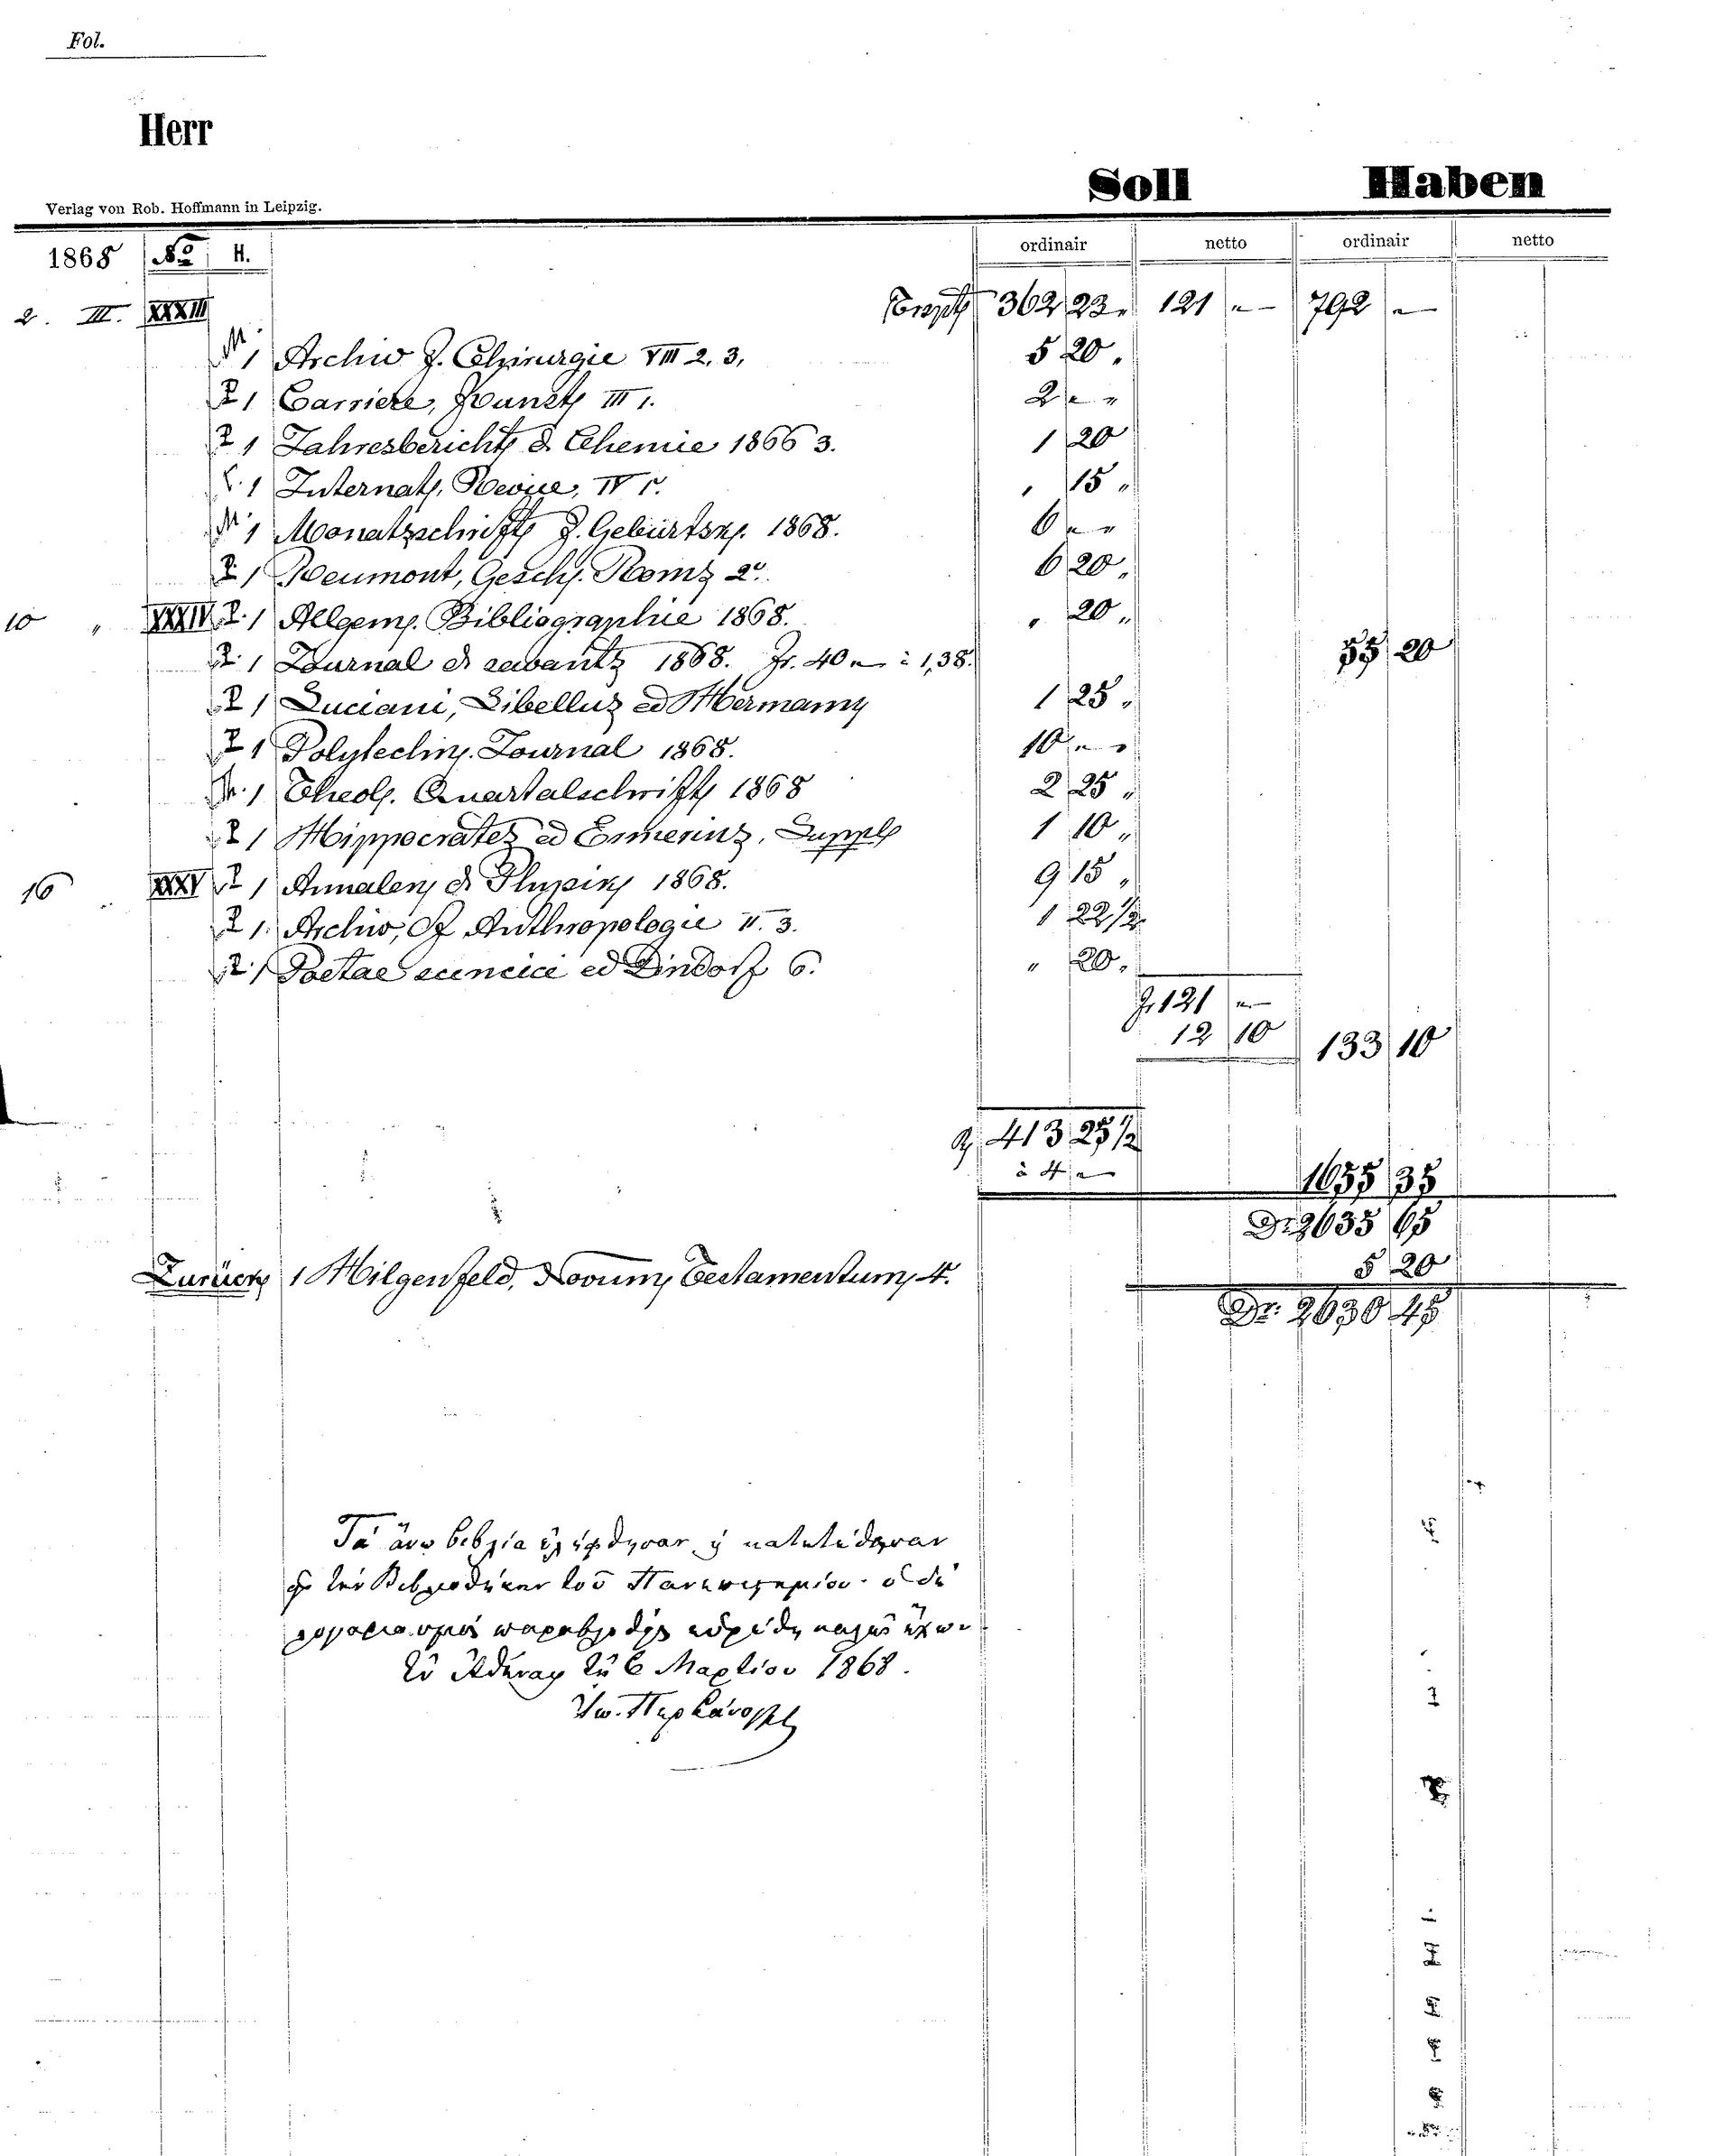 Fol.
Herr
Soll Haben
Verlag von Rob. Hoffmann in Leipzig.
1868 No H. ordinair netto ordinair netto
2. III. XXXIII Transpt 362 22 „ 121 „ — 792 „ —
1 Archiv f. Chirurgie VIII 2, 3, 5 20 „
1 Carriere, Kunst III 1. 2 „ „
1 Jahresbericht d. Chemie 1866 3. 1 20
1 Internat. Revue, IV 1. „ 15 „
1 Monatsschrift f. Geburtsk. 1868. 6 „ „
1 Reumont, Gesch. Roms 2. 6 20 „
10 „ XXXIV 1 Allgem. Bibliographie 1868. „ 20 „
1 Journal d. savants 1868. Fr. 40 „ — à 1,38. 55 20
1 Luciani, Libellus ed Hermann 1 25 „
1 Polytechn. Journal 1868. 10 „ „
1 Theol. Quartalschrift 1868 2 25 „
1 Hippocrates ed Ermerins, Suppl 1 10 „
16 „ XXXV 1 Annalen d. Physik 1868. 9 15 „
1 Archiv, f Anthropologie II. 3. 1 22½
1 Poetae scenici ed Dindorf 6. „ 20 „
fl 121 „ —
12 10 133 10
413 25½
à 4 „ — 1655 35
Dr. 2635 65
Zurück 1 Hilgenfeld, Novum Testamentum, 4. 5 20
Dr. 2630 45
Τὰ ἄνω βιβλία ἐλήφθησαν καὶ κατετέθησαν
εἰς τὴν Βιβλιοθήκην τοῦ Πανεπιστημίου. ὁ δὲ
λογαριασμὸς παραβληθεὶς εὑρέθη καλῶς ἔχων
Ἐν Ἀθήναις τῇ 6 Μαρτίου 1868.